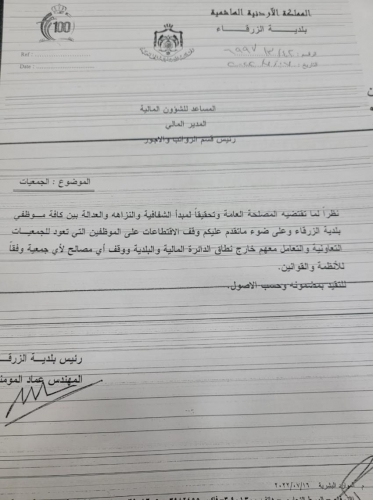 المملكة الأردنية الهاشمية
بلدية الزرقاء
100
Ref
Date
المساعد للشؤون المالية
المدير المالي
رئيس قسم الرواتب والأجور
الموضوع : الجمعيات
نظراً لما تقتضيه المصلحة العامة وتحقيقاً لمبدأ الشفافية والنزاهه والعدالة بين كافة موظفي
بلدية الزرقاء وعلى ضوء ماتقدم عليكم وقف الاقتطاعات على الموظفين التي تعود للجمعيات
التعاونية والتعامل معهم خارج نطاق الدائرة المالية والبلدية ووقف أي مصالح لأي جمعية وفقاً
للأنظمة والقوانين.
للتقيد بمضمونه وحسب الاصول.
رئيس بلدية الزرق
المهندس عماد المومن
الموارد البشرية ٢٠٢٢/٠٧/١٦